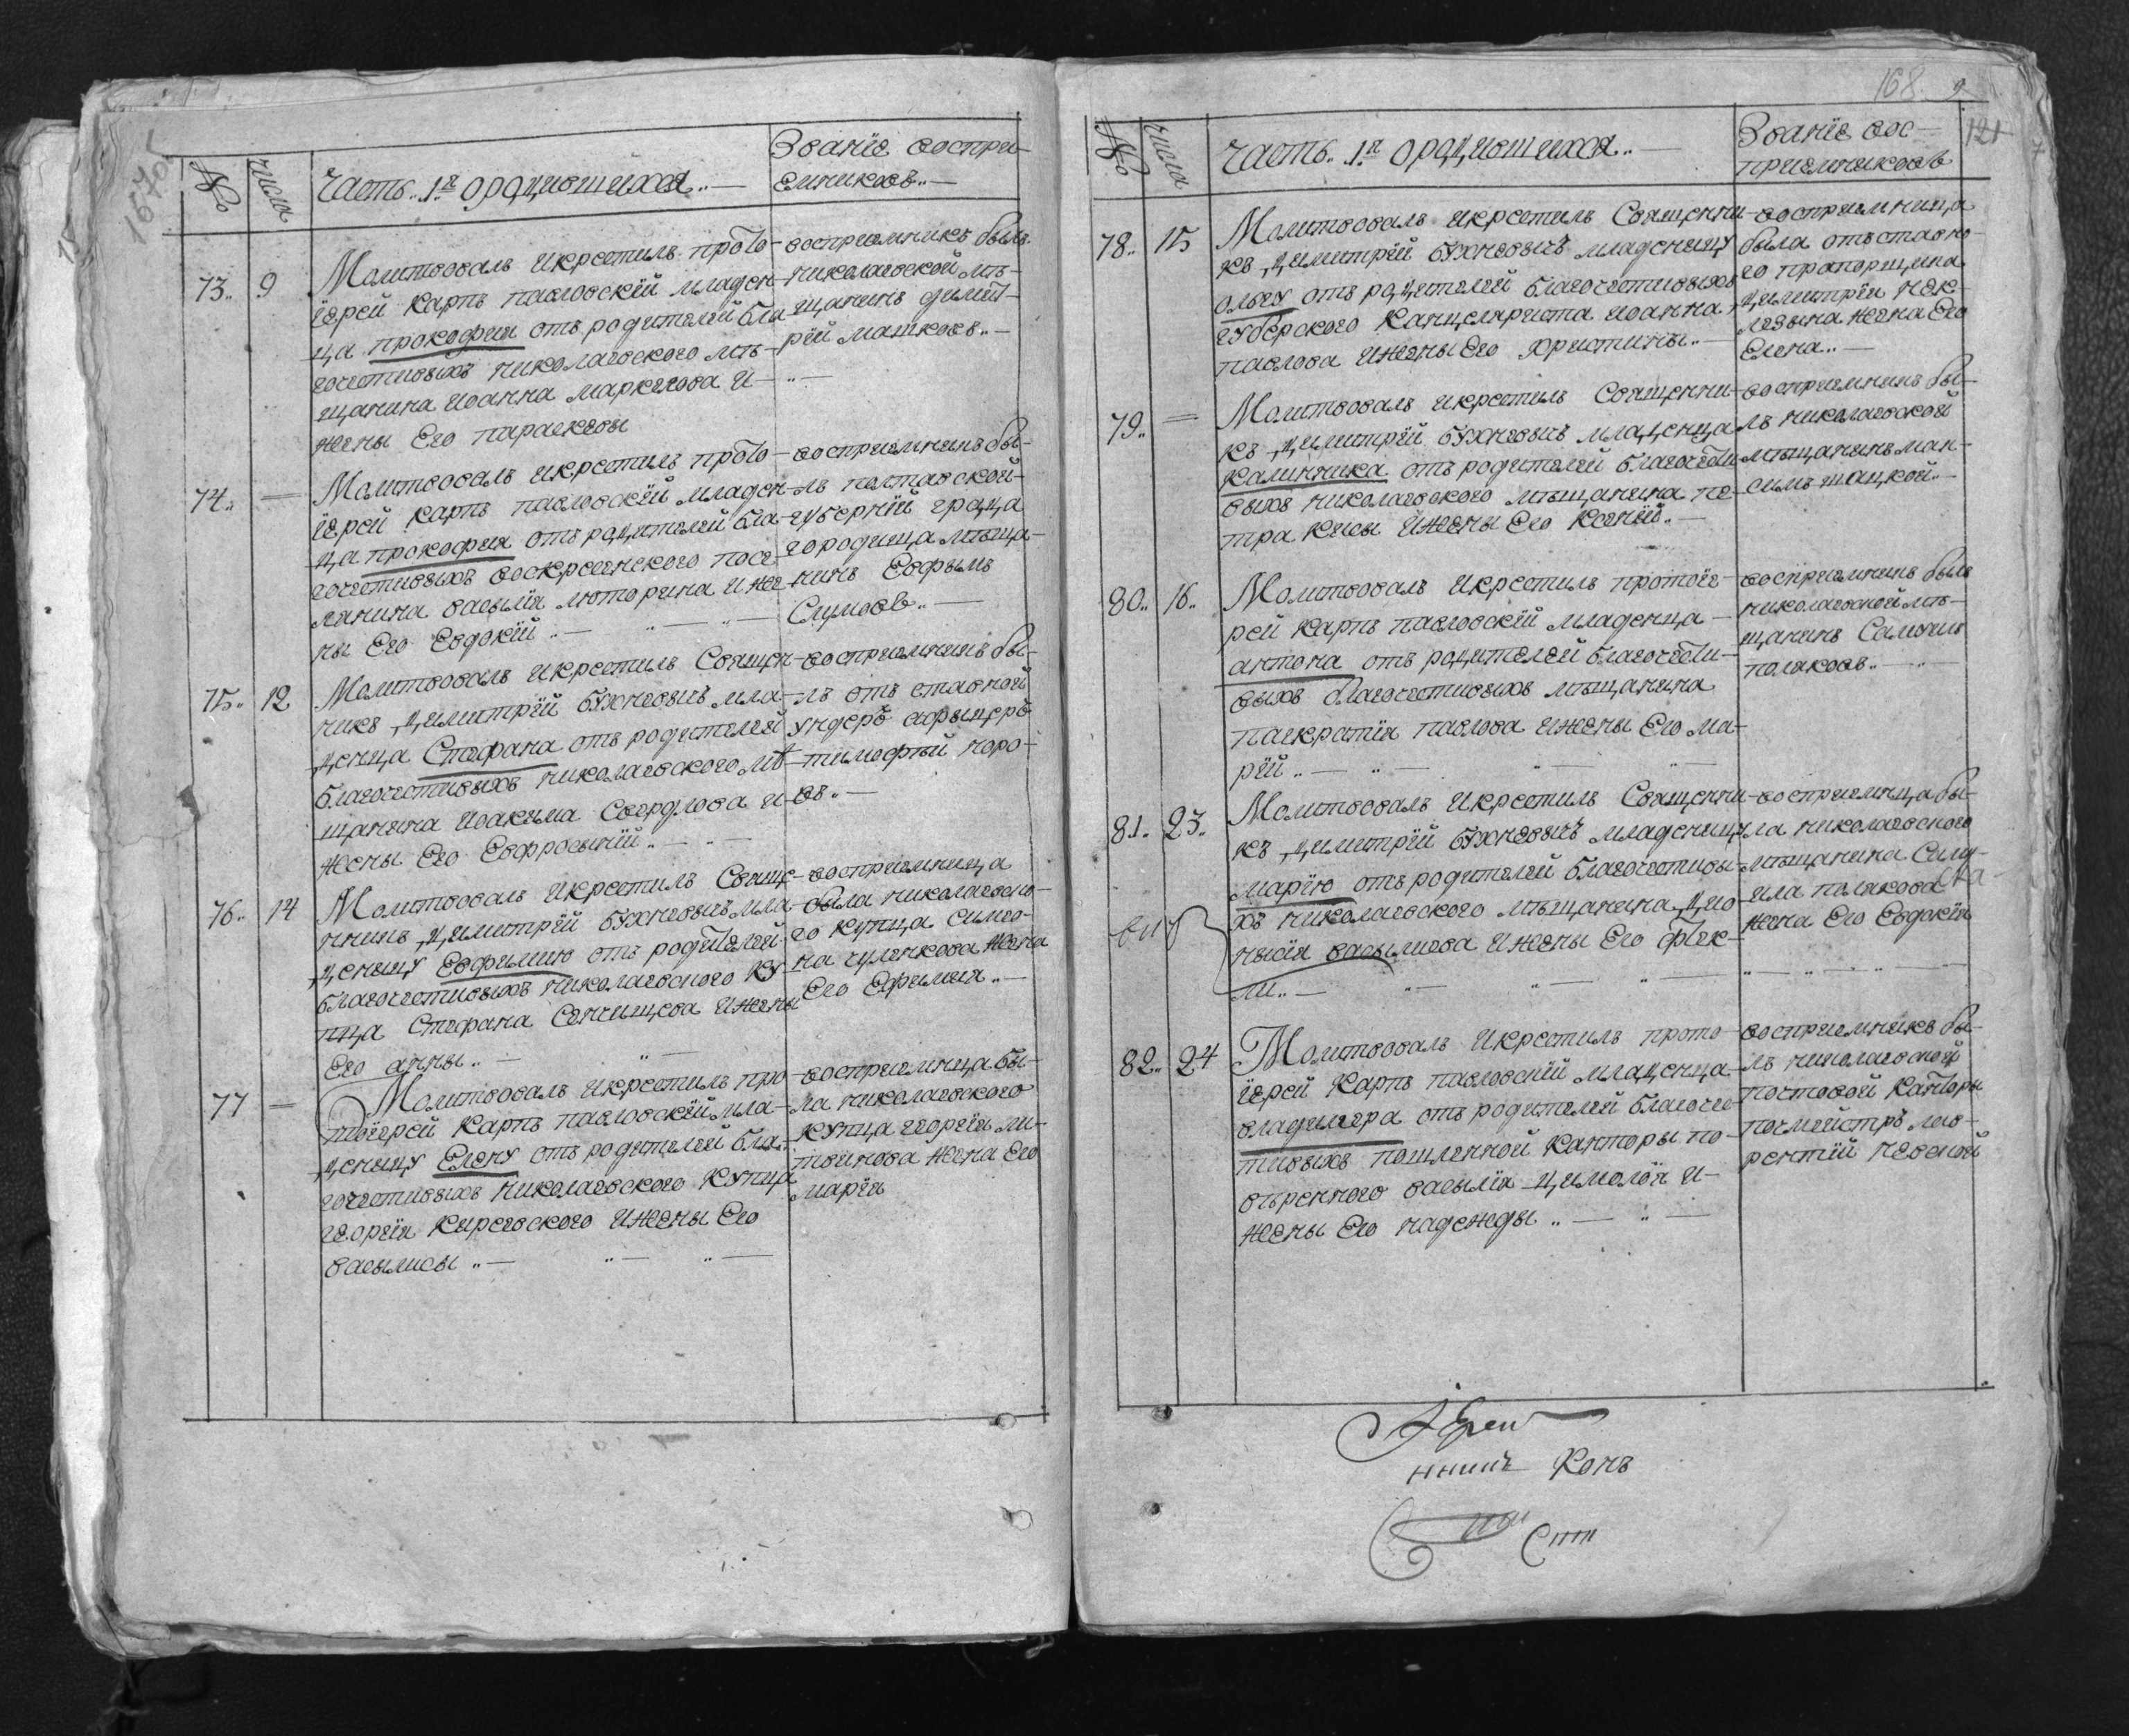 №
числа
Часть 1я о родившихся
Званіе воспри-
емниковъ
73 9
Молитвовалъ и крестилъ прото-
іерей Карпъ павловскій младен-
ца прокофия отъ родителей бла-
гочестивыхъ николаевского мѣ-
щанина иоанна маркелова и
жены Его параскевы
восприемникъ былъ
николаевской мѣ-
щанинъ димит-
рій машковъ
74
Молитвовалъ и крестилъ прото-
іерей Карпъ павловскій младен-
ца прокофия отъ родителей бла-
гочестивыхъ воскресенского посе-
лянина васылія моторина и же-
ны Его Евдокіи
восприемникъ бы-
лъ полтавской
губерніи града
городища мѣща-
нинъ Евфымъ
75 12
Молитвовалъ и крестилъ Священ-
никъ димитрій младенца
Стефана отъ родителей
благочестивыхъ николаевского мѣ-
щанина иоакима Свердлова и
жены Его Евфросыніи
восприемникъ бы-
лъ отъ ставной
ундеръ афыцеръ
тимофѣй
76 14
Молитвовалъ и крестилъ Свяще-
нникъ димитрій мла-
денцу Евфимию отъ родителей
благочестивыхъ николаевского ку-
пца Стефана Сенчищева и жены
Его анны
восприемница
была николаевско-
го купца симео-
на чуленкова жена
Его Ефимия
77
Молитвовалъ и крестилъ про-
тоіерей Карпъ павловскій мла-
денцу Елену отъ родителей бла-
гочестивыхъ николаевского купца
георгія Киреевского и жены Его
васылисы
восприемница бы-
ла николаевского
купца георгія ли-
твинова жена Его
марія
168
121
№
числа
Часть 1я о родившихся
Званіе вос-
приемниковъ
78 15
Молитвовалъ и крестилъ Священни-
къ димитрій младенцу
ольгу отъ родителей благочестивыхъ
губерского Канцеляриста иоанна
павлова и жены Его христины
восприемница
была отъставно-
го прапорщика
димитрія
жена Его
Елена
79
Молитвовалъ и крестилъ Священни-
къ димитрій младенца
Калинника отъ родителей благочести-
выхъ николаевского мѣщанина пе-
тра Кисы и жены Его Ксеніи
восприемникъ бы-
лъ николаевской
мѣщанинъ мак-
симъ шацкой
80 16
Молитвовалъ и крестилъ протоіе-
рей Карпъ павловскій младенца
антона отъ родителей благочести-
выхъ благочестивыхъ мѣщанина
панкратія павлова и жены Его ма-
ріи
восприемникъ былъ
николаевской мѣ-
щанинъ Самоилъ
поляковъ
81 23
Молитвовалъ и крестилъ Священни-
къ димитрій младенцу
марію отъ родителей благочестивы-
хъ николаевского мѣщанина дио-
нысія васылиева и жены Его Фек-
лы
восприемница бы-
ла николаевского
мѣщанина
полякова
жена Его Евдокія
82 24
Молитвовалъ и крестилъ прото-
іерей Карпъ павловскій младенца
владимера отъ родителей благоче-
стивыхъ пошленной Канторы по-
вѣренного васылія и
жены Его надежды
восприемникъ бы-
лъ николаевской
почтовой Канторы
почмейстръ лав-
рентій
іерей